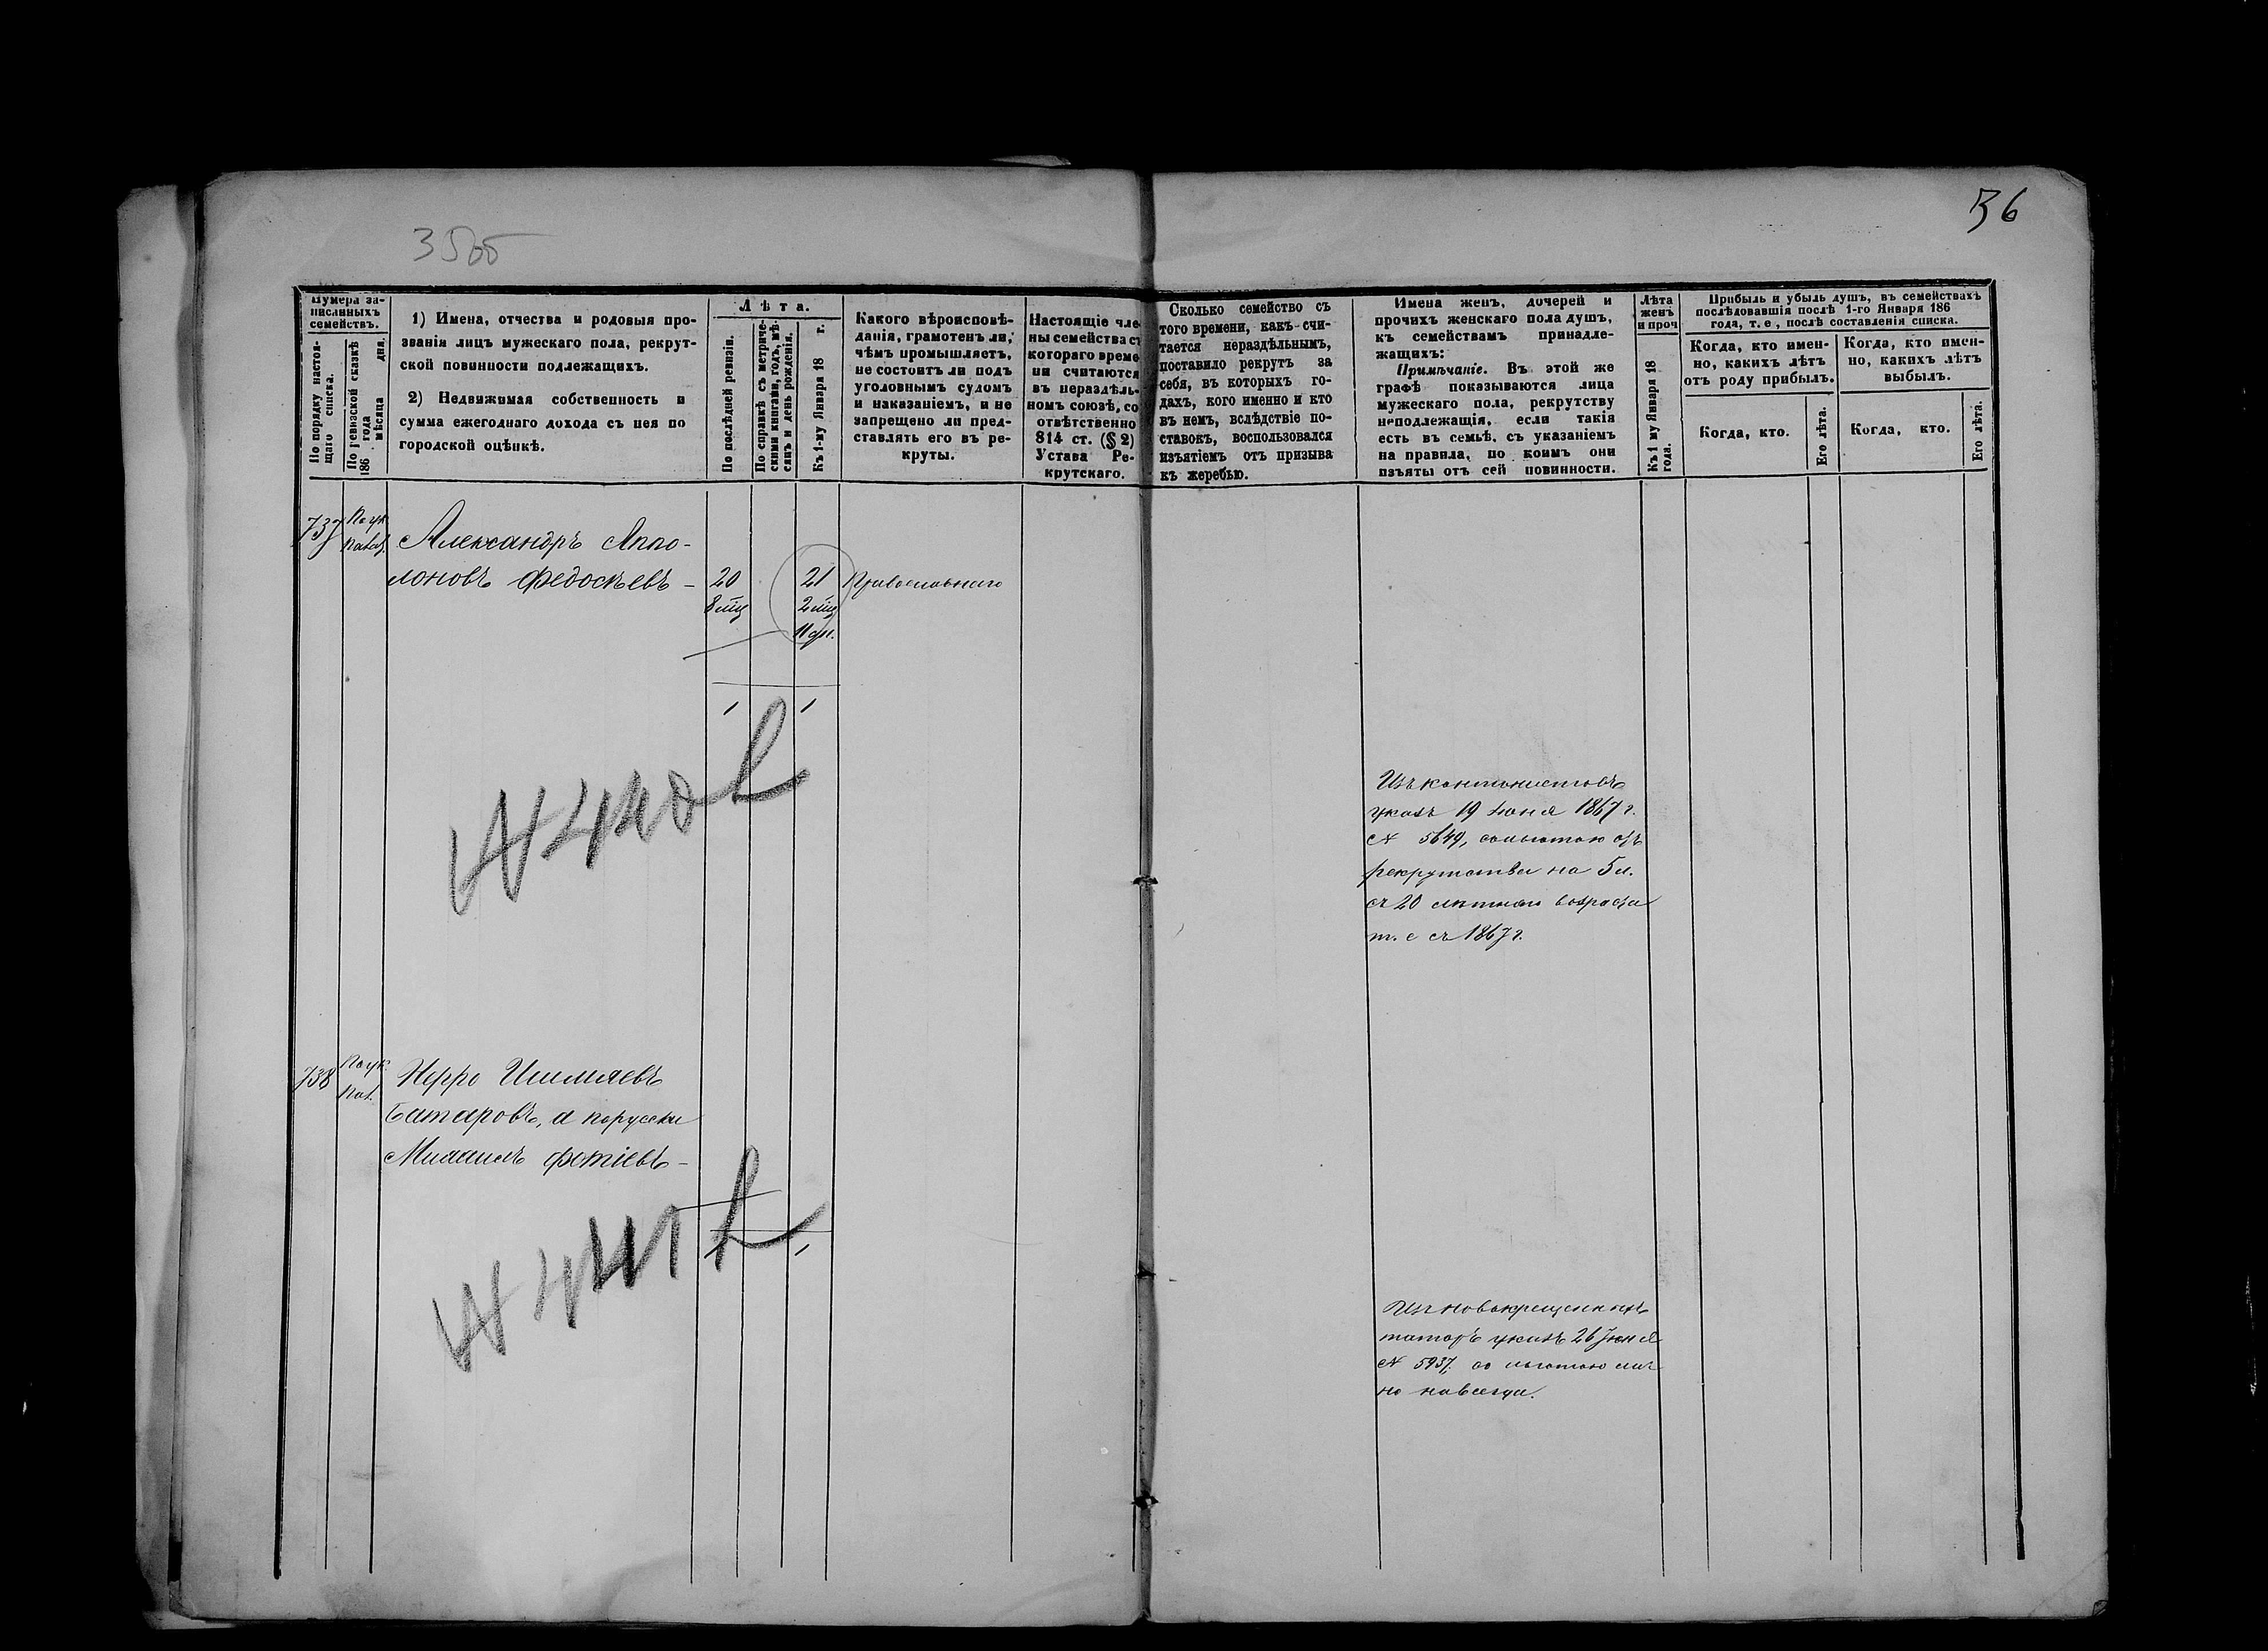 35об
36
Нумера за-
писанныхъ
семействъ.
По порядку настоя-
щаго списка.
По ревизской сказкѣ
186 года
мѣсяца дня.
1) Имена, отчества и родовыя про-
званія лицъ мужескаго пола, рекрут-
ской повинности подлежащихъ.
2) Недвижимая собственность и
сумма ежегоднаго дохода съ нея по
городской оцѣнкѣ.
Лѣта.
По послѣдней ревизіи.
По справкѣ съ метриче-
скими книгами, годъ, мѣ-
сяцъ и день рожденія.
Къ 1-му Января 18 г.
Какого вѣроисповѣ-
данія, грамотенъ ли,
чѣмъ промышляетъ,
не состоитъ ли подъ
уголовнымъ судомъ
и наказаніемъ, и не
запрещено ли пред-
ставлять его въ ре-
круты.
Настоящіе чле-
ны семейства съ
котораго време-
ни считаются
въ нераздѣль-
номъ союзѣ, со-
отвѣтственно
814 ст. (§ 2)
Устава Ре-
крутскаго.
Сколько семейство съ
того времени, какъ счи-
тается нераздѣльнымъ,
поставило рекрутъ за
себя, въ которыхъ го-
дахъ, кого именно и кто
въ немъ, вслѣдствіе по-
ставокъ, воспользовался
изъятіемъ отъ призыва
къ жеребью.
Имена женъ, дочерей и
прочихъ женскаго пола душъ,
къ семействамъ принадле-
жащихъ:
Примѣчаніе. Въ этой же
графѣ показываются лица
мужескаго пола, рекрутству
неподлежащія, если такія
есть въ семьѣ, съ указаніемъ
на правила, по коимъ они
изъяты отъ сей повинности.
Лѣта
женъ
и проч
Къ 1 му Января 18
года.
Прибыль и убыль душъ, въ семействахъ
послѣдовавшія послѣ 1-го Января 186
года, т. е., послѣ составленія списка.
Когда, кто имен-
но, какихъ лѣтъ
отъ роду прибылъ.
Когда, кто.
Его лѣта.
Когда, кто имен-
но, какихъ лѣтъ
выбылъ.
Когда, кто.
Его лѣта.
737
По ук.
Александръ Аппо-
лоновъ Федосѣевъ -
20
8 мц
21
2 мц
11 дн.
Православнаго
1 1
№ 440
Изъ кантонистовъ
указъ 19 Іюня 1867 г.
№ 5649, со льготою отъ
рекрутства на 5 л.
съ 20 лѣтняго возраста
т. е съ 1867 г.
738
По ук.
Батаровъ, а порусски
Михаилъ Фотіевъ -
1 1
№ 441
Изъ новокрещенныхъ
татаръ указъ 26 Іюня
№ 5937. со льготою лич
но навсегда.